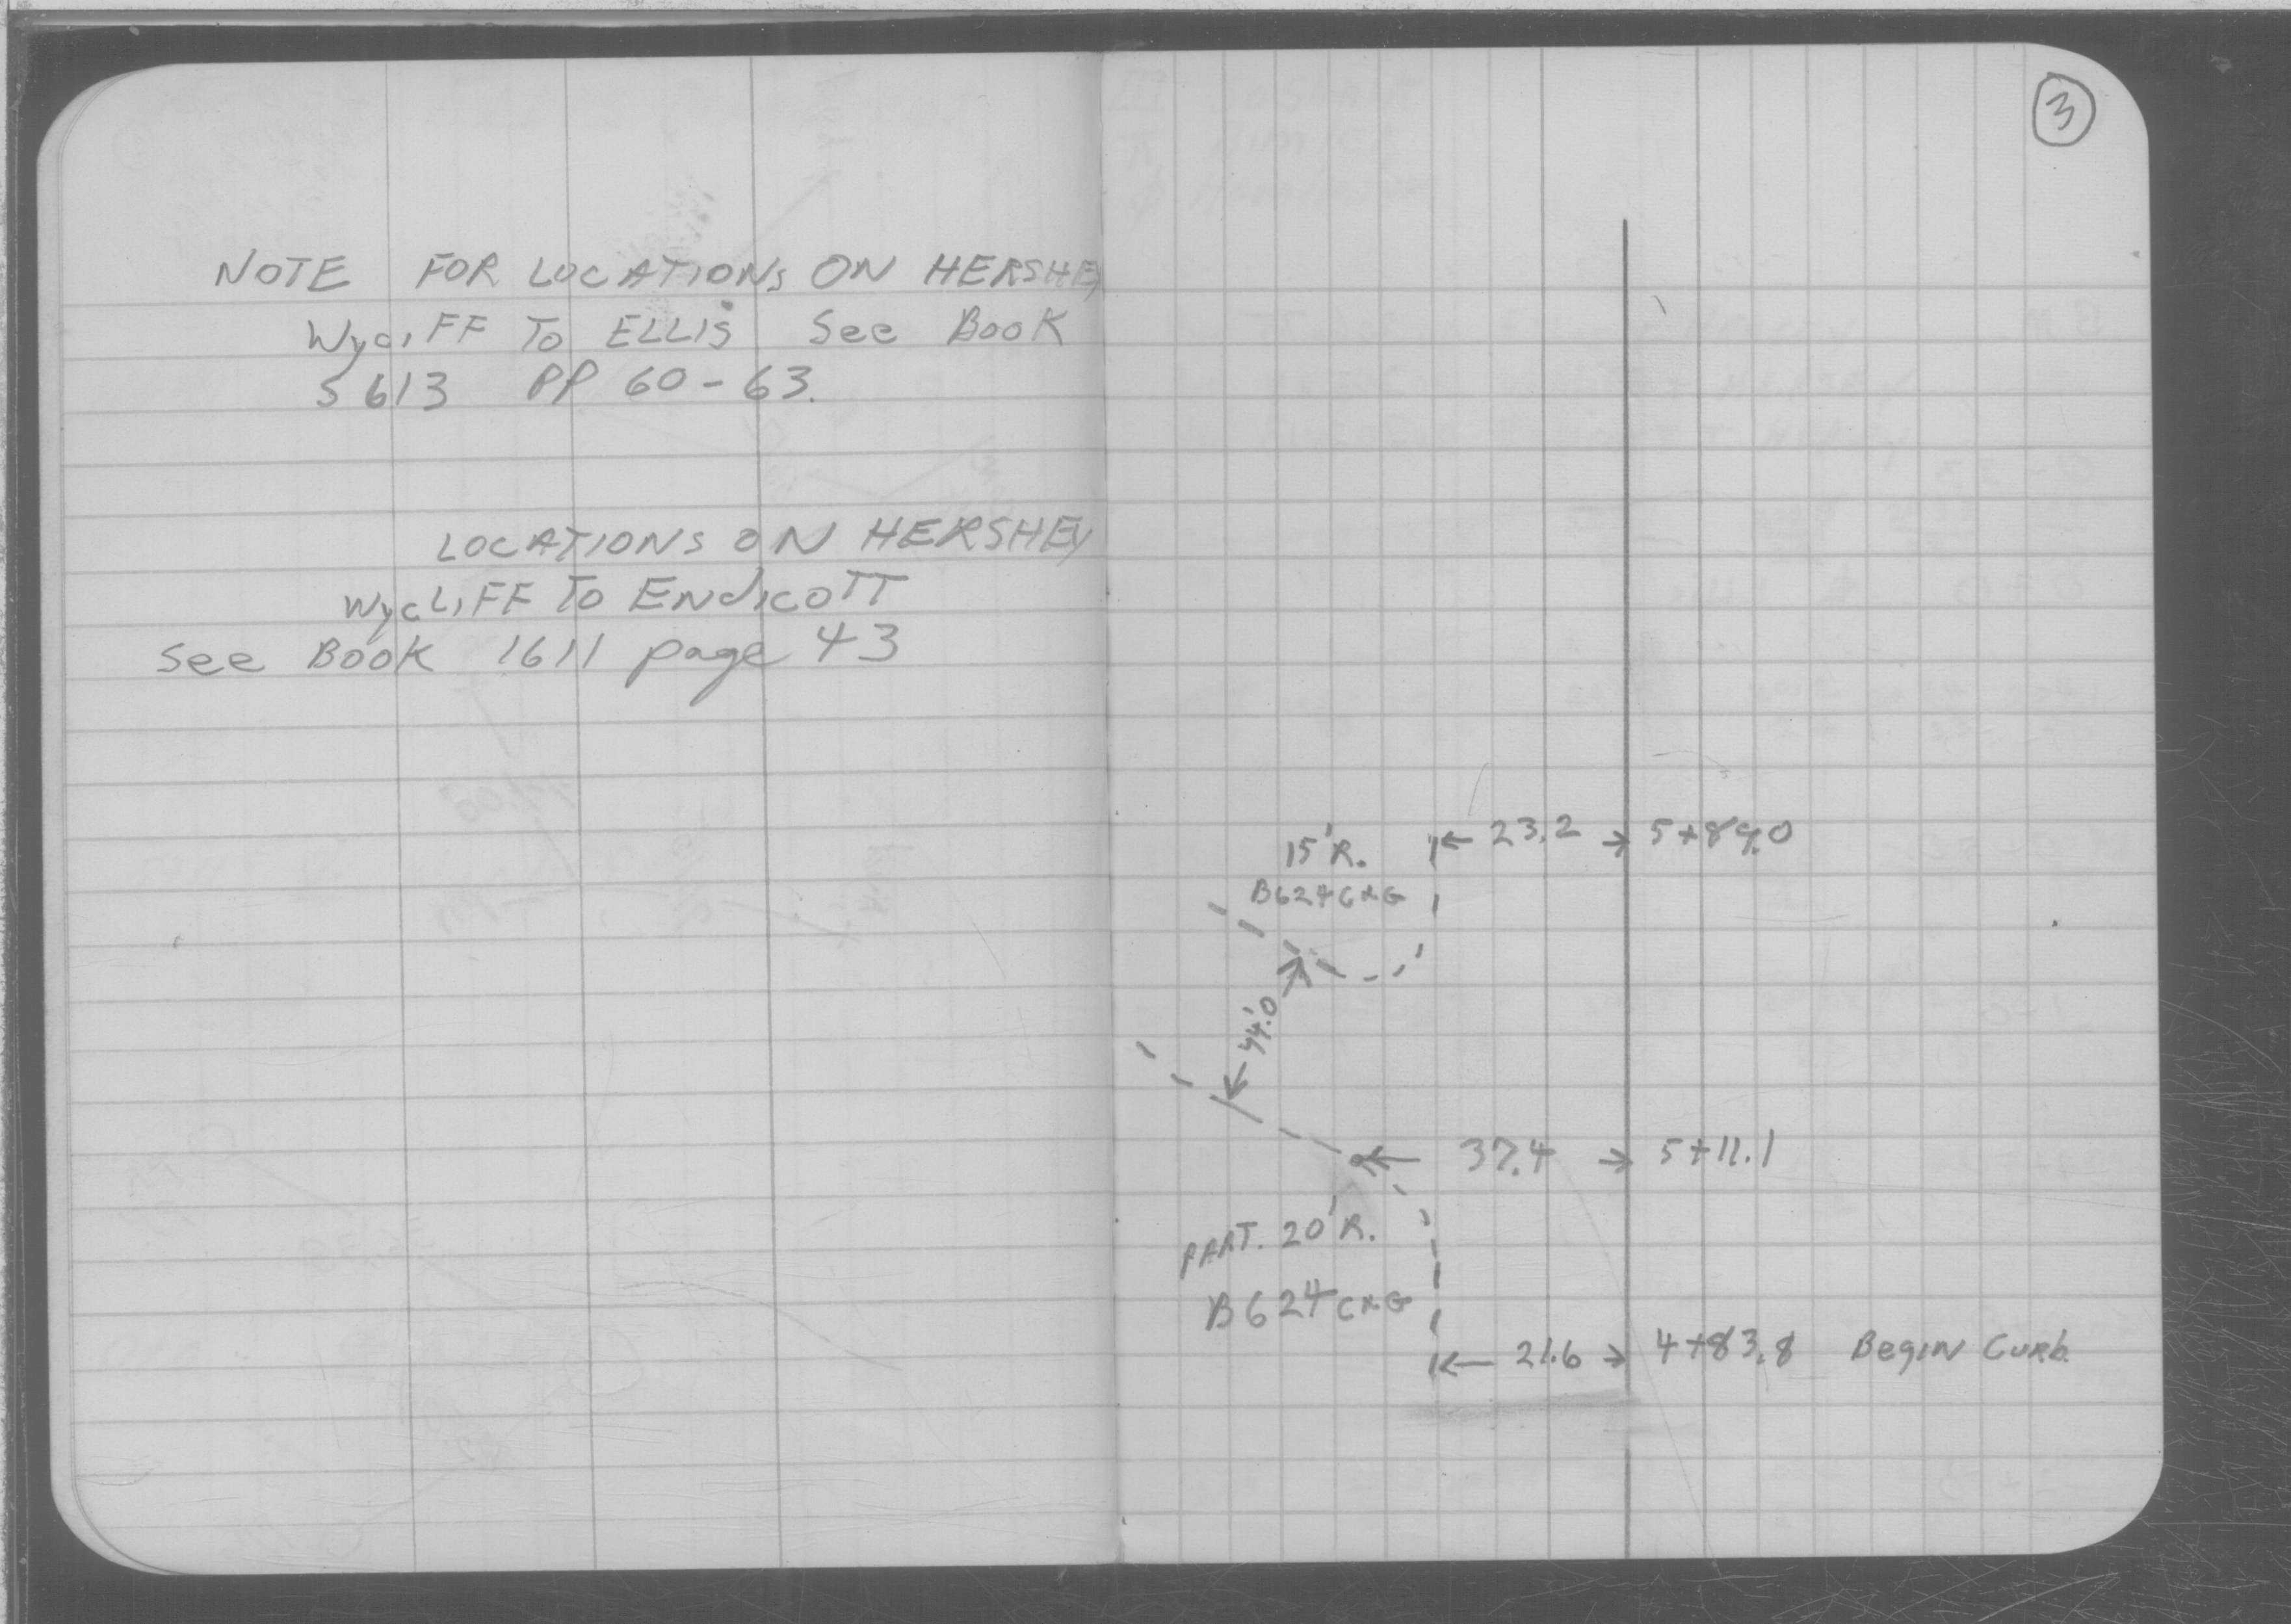 3
NOTE FOR LOCATIONS ON HERSHEY
WycliFF To ELLIS See Book
5613 PP 60-63.
LOCATIONS ON HERSHEY
WycLiFF To Endicott
See Book 1611 page 43
15' R. ← 23.2 → 5+89.0
B624C&G
44.0'
← 37.4 → 5+11.1
PART. 20' R.
B624C&G
← 21.6 → 4+83.8 Begin Curb